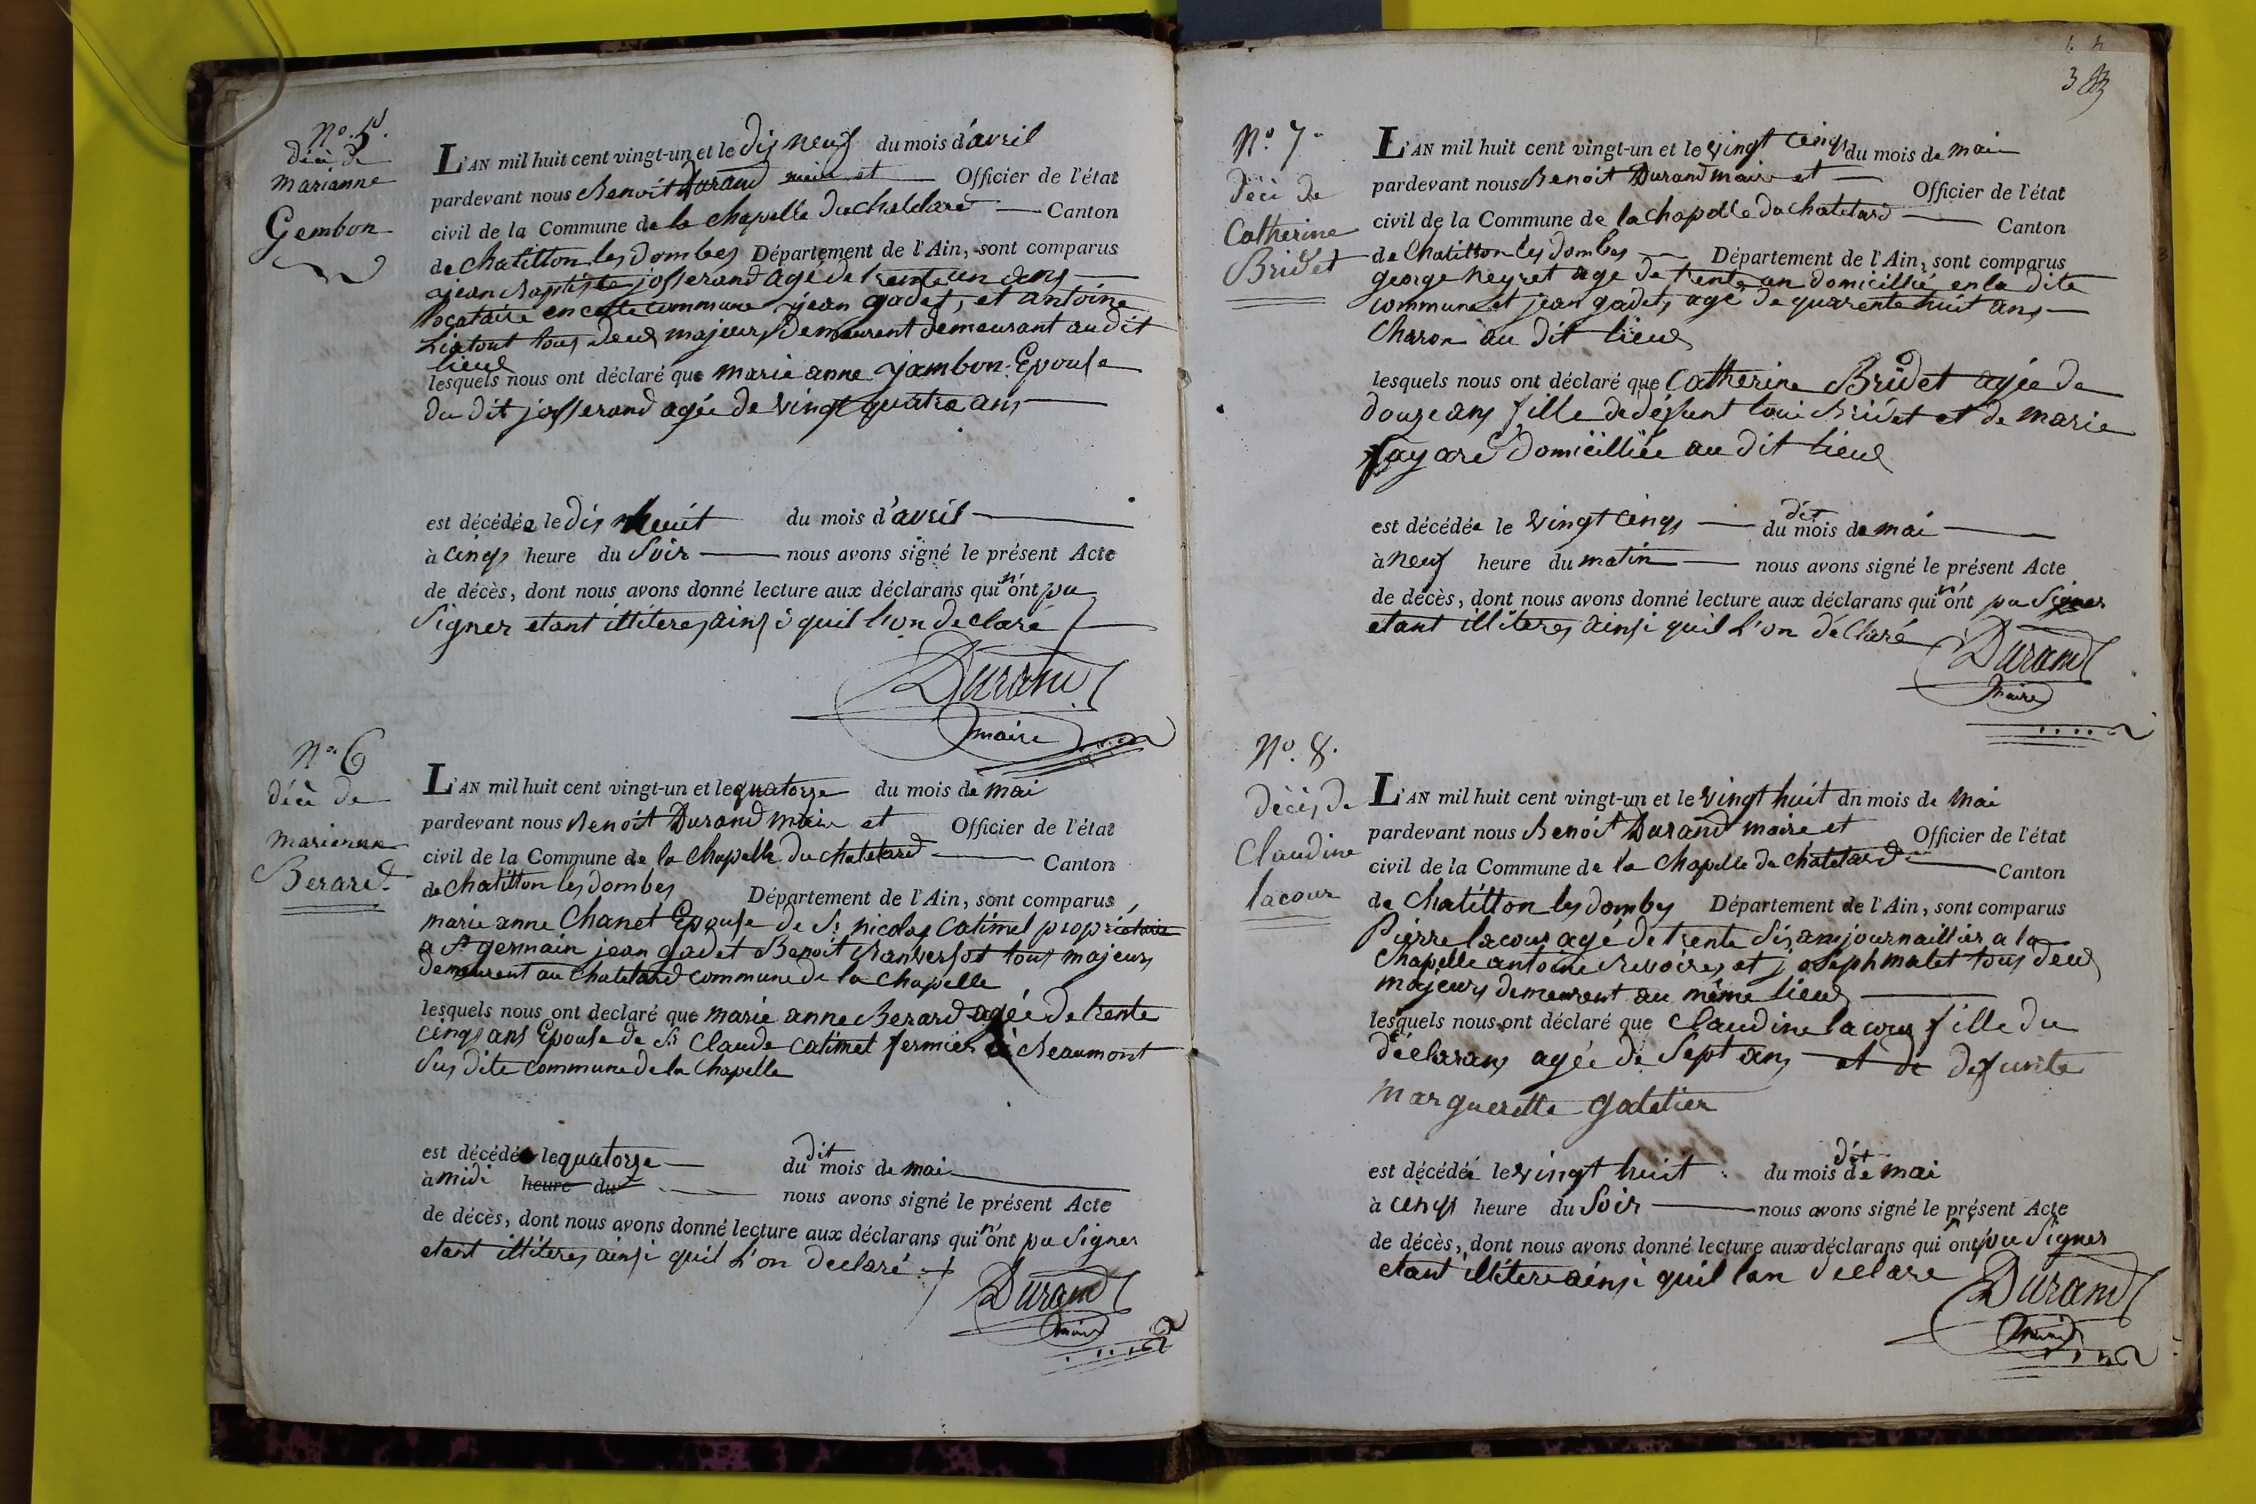 No. 5.
décè de
marianne
Gembon
L'AN mil huit cent vingt-un et le dix neuf du mois d'avril
pardevant nous Benoit Durand maire et Officier de l'état
civil de la Commune de la chapelle du chatelard Canton
de chatillon les dombes Département de l'Ain, sont comparus
jean Baptiste josserand agé de trente un ans
locataire en cette commune jean gadet, et antoine
tous deux majeurs demeurent demeurant au dit
lieux
lesquels nous ont déclaré que marie anne jambon Epouse
du dit josserand agée de vingt quatre ans
est décédée le dix huit du mois d'avril
à cinq heure du Soir nous avons signé le présent Acte
de décès, dont nous avons donné lecture aux déclarans qui n'ont pu
Signer etant illiteres ainsi quil l'on declaré
Durand
maire
No. 6
décè de
marianne
Berard
L'AN mil huit cent vingt-un et le quatorze du mois de mai
pardevant nous Benoit Durand maire et Officier de l'état
civil de la Commune de la chapelle du chatelard Canton
de chatillon les dombes Département de l'Ain, sont comparus
marie anne Chanet Epouse de Sr nicolas Catimel propriétaire
a St germain jean gadet Benoit Ranversot tous majeurs
demeurent au chatelard commune de la chapelle
lesquels nous ont declaré que marie anne Berard agée de trente
cinq ans Epouse de Sr Claude catimel fermier à Beaumont
Sus dite commune de la chapelle
est décédée le quatorze du dit mois de mai
à midi heure du nous avons signé le présent Acte
de décès, dont nous avons donné lecture aux déclarans qui n'ont pu Signer
etant illiteres ainsi quil l'on declaré
Durand
maire
3
No. 7
décè de
Catherine
Bridet
L'AN mil huit cent vingt-un et le vingt cinq du mois de mai
pardevant nous Benoit Durand maire et Officier de l'état
civil de la Commune de la chapelle du chatelard Canton
de chatillon les dombes Département de l'Ain, sont comparus
george neyret agé de trente an domicillié en la dite
commune et jean gadet, agé de quarente huit ans
Charon au dit lieux
lesquels nous ont déclaré que Catherine Bridet agée de
douze ans fille de défunt loui Bridet et de marie
fayard domicilliée au dit lieux
est décédée le vingt cinq du dit mois de mai
à neuf heure du matin nous avons signé le présent Acte
de décès, dont nous avons donné lecture aux déclarans qui n'ont pu Signer
etant illiteres ainsi quil l'on déclaré
Durand
maire
No. 8.
décès de
Claudine
lacour
L'AN mil huit cent vingt-un et le vingt huit dn mois de mai
pardevant nous Benoit Durand maire et Officier de l'état
civil de la Commune de la chapelle du chatelard Canton
de chatillon les dombes Département de l'Ain, sont comparus
Pierre lacour agé de trente six ans journaillier a la
Chapelle antoine Revoires et joseph malet tous deux
majeurs demeurent au même lieux
lesquels nous ont déclaré que Claudine lacour fille du
déclarans agée de Sept ans et de defunte
marguerette gatelier
est décédée le vingt huit du mois dit de mai
à cinq heure du Soir nous avons signé le présent Acte
de décès, dont nous avons donné lecture aux déclarans qui n'ont pu Signer
etant illitere ainsi quil lon declare
Durand
maire